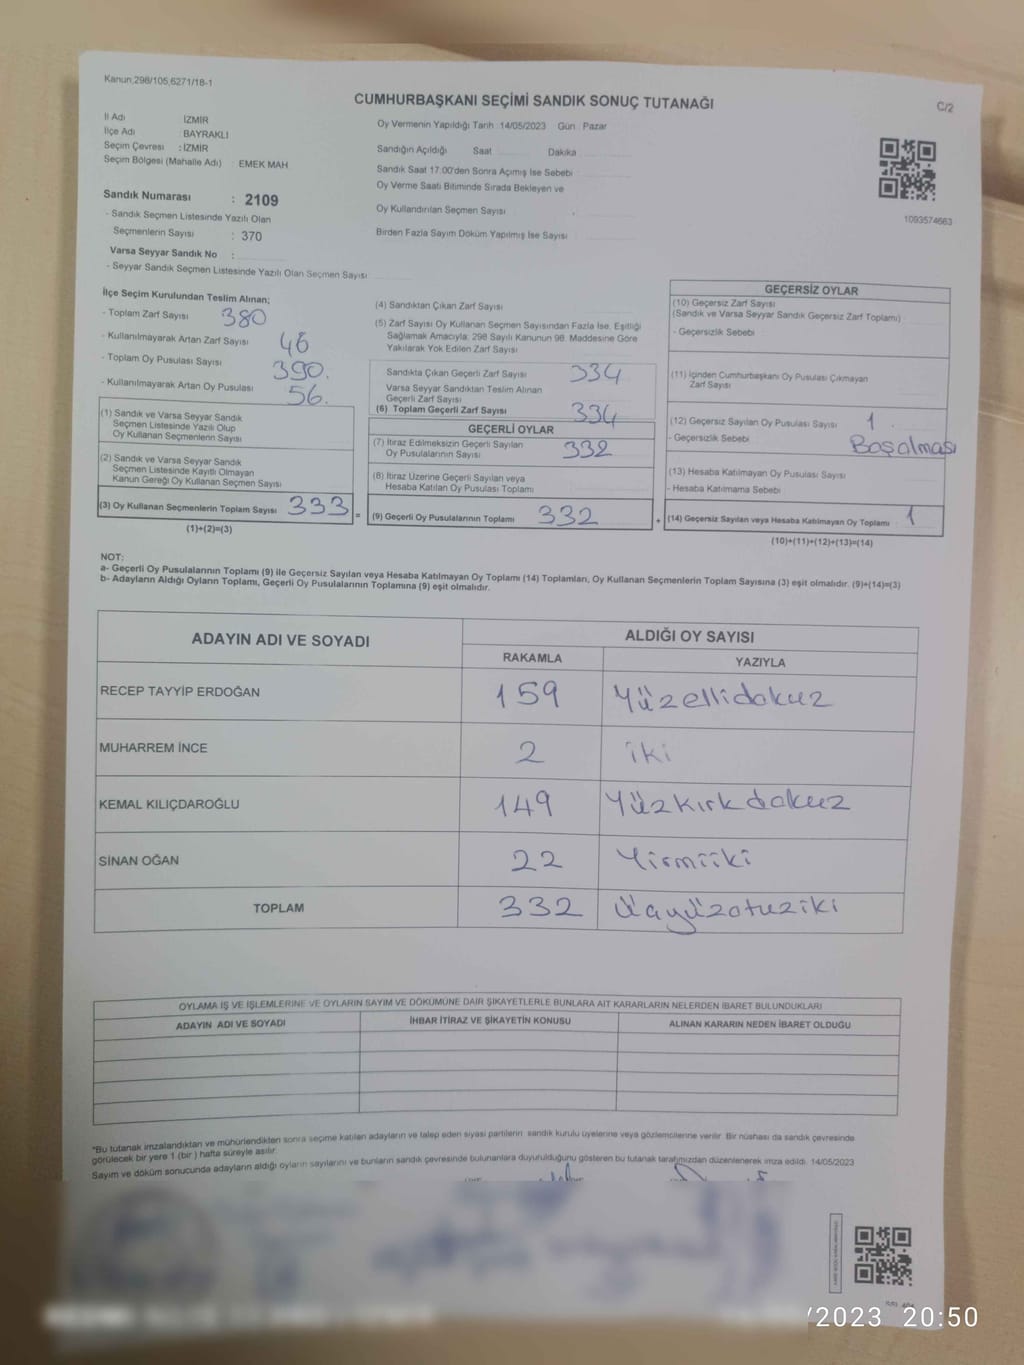 Kanun,298/105,6271/18-1
CUMHURBAŞKANI SEÇİMİ SANDIK SONUÇ TUTANAĞI
C/2
İl Adı İZMİR
İlçe Adı BAYRAKLI
Seçim Çevresi : İZMİR
Seçim Bölgesi (Mahalle Adı) : EMEK MAH
Oy Vermenin Yapıldığı Tarih :14/05/2023 Gün : Pazar
Sandığın Açıldığı Saat Dakika
Sandık Saat 17:00'den Sonra Açımış İse Sebebi
Oy Verme Saati Bitiminde Sırada Bekleyen ve
Oy Kullandırılan Seçmen Sayısı
Birden Fazla Sayım Döküm Yapılmış İse Sayısı
1093574663
Sandık Numarası : 2109
- Sandık Seçmen Listesinde Yazılı Olan
Seçmenlerin Sayısı : 370
Varsa Seyyar Sandık No :
- Seyyar Sandık Seçmen Listesinde Yazılı Olan Seçmen Sayısı
İlçe Seçim Kurulundan Teslim Alınan;
- Toplam Zarf Sayısı 380
- Kullanılmayarak Artan Zarf Sayısı 46
- Toplam Oy Pusulası Sayısı 390.
- Kullanılmayarak Artan Oy Pusulası 56.
(1) Sandık ve Varsa Seyyar Sandık
Seçmen Listesinde Yazılı Olup
Oy Kullanan Seçmenlerin Sayısı
(2) Sandık ve Varsa Seyyar Sandık
Seçmen Listesinde Kayıtlı Olmayan
Kanun Gereği Oy Kullanan Seçmen Sayısı
(3) Oy Kullanan Seçmenlerin Toplam Sayısı 333 =
(1)+(2)=(3)
(4) Sandıktan Çıkan Zarf Sayısı
(5) Zarf Sayısı Oy Kullanan Seçmen Sayısından Fazla İse, Eşitliği
Sağlamak Amacıyla, 298 Sayılı Kanunun 98. Maddesine Göre
Yakılarak Yok Edilen Zarf Sayısı
Sandıkta Çıkan Geçerli Zarf Sayısı 334
Varsa Seyyar Sandıktan Teslim Alınan
Geçerli Zarf Sayısı
(6) Toplam Geçerli Zarf Sayısı 334
GEÇERLİ OYLAR
(7) İtiraz Edilmeksizin Geçerli Sayılan
Oy Pusulalarının Sayısı 332
(8) İtiraz Üzerine Geçerli Sayılan veya
Hesaba Katılan Oy Pusulası Toplamı
(9) Geçerli Oy Pusulalarının Toplamı 332 +
GEÇERSİZ OYLAR
(10) Geçersiz Zarf Sayısı
(Sandık ve Varsa Seyyar Sandık Geçersiz Zarf Toplamı)
- Geçersizlik Sebebi
(11) İçinden Cumhurbaşkanı Oy Pusulası Çıkmayan
Zarf Sayısı
(12) Geçersiz Sayılan Oy Pusulası Sayısı 1
- Geçersizlik Sebebi Boşolması
(13) Hesaba Katılmayan Oy Pusulası Sayısı
- Hesaba Katılmama Sebebi
(14) Geçersiz Sayılan veya Hesaba Katılmayan Oy Toplamı 1
(10)+(11)+(12)+(13)=(14)
NOT:
a- Geçerli Oy Pusulalarının Toplamı (9) ile Geçersiz Sayılan veya Hesaba Katılmayan Oy Toplamı (14) Toplamları, Oy Kullanan Seçmenlerin Toplam Sayısına (3) eşit olmalıdır. (9)+(14)=(3)
b- Adayların Aldığı Oyların Toplamı, Geçerli Oy Pusulalarının Toplamına (9) eşit olmalıdır.
ADAYIN ADI VE SOYADI ALDIĞI OY SAYISI
RAKAMLA YAZIYLA
RECEP TAYYİP ERDOĞAN 159 Yüzellidokuz
MUHARREM İNCE 2 iki
KEMAL KILIÇDAROĞLU 149 Yüzkırkdokuz
SİNAN OĞAN 22 Yirmiiki
TOPLAM 332 Üçyüzotuziki
OYLAMA İŞ VE İŞLEMLERİNE VE OYLARIN SAYIM VE DÖKÜMÜNE DAİR ŞİKAYETLERLE BUNLARA AİT KARARLARIN NELERDEN İBARET BULUNDUKLARI
ADAYIN ADI VE SOYADI İHBAR İTİRAZ VE ŞİKAYETİN KONUSU ALINAN KARARIN NEDEN İBARET OLDUĞU
"Bu tutanak imzalandıktan ve mühürlendikten sonra seçime katılan adayların ve talep eden siyasi partilerin sandık kurulu üyelerine veya gözlemcilerine verilir. Bir nüshası da sandık çevresinde
görülecek bir yere 1 (bir) hafta süreyle asılır.
Sayım ve döküm sonucunda adayların aldığı oyların sayılarını ve bunların sandık çevresinde bulunanlara duyurulduğunu gösteren bu tutanak tarafımızdan düzenlenerek imza edildi. 14/05/2023
/2023 20:50